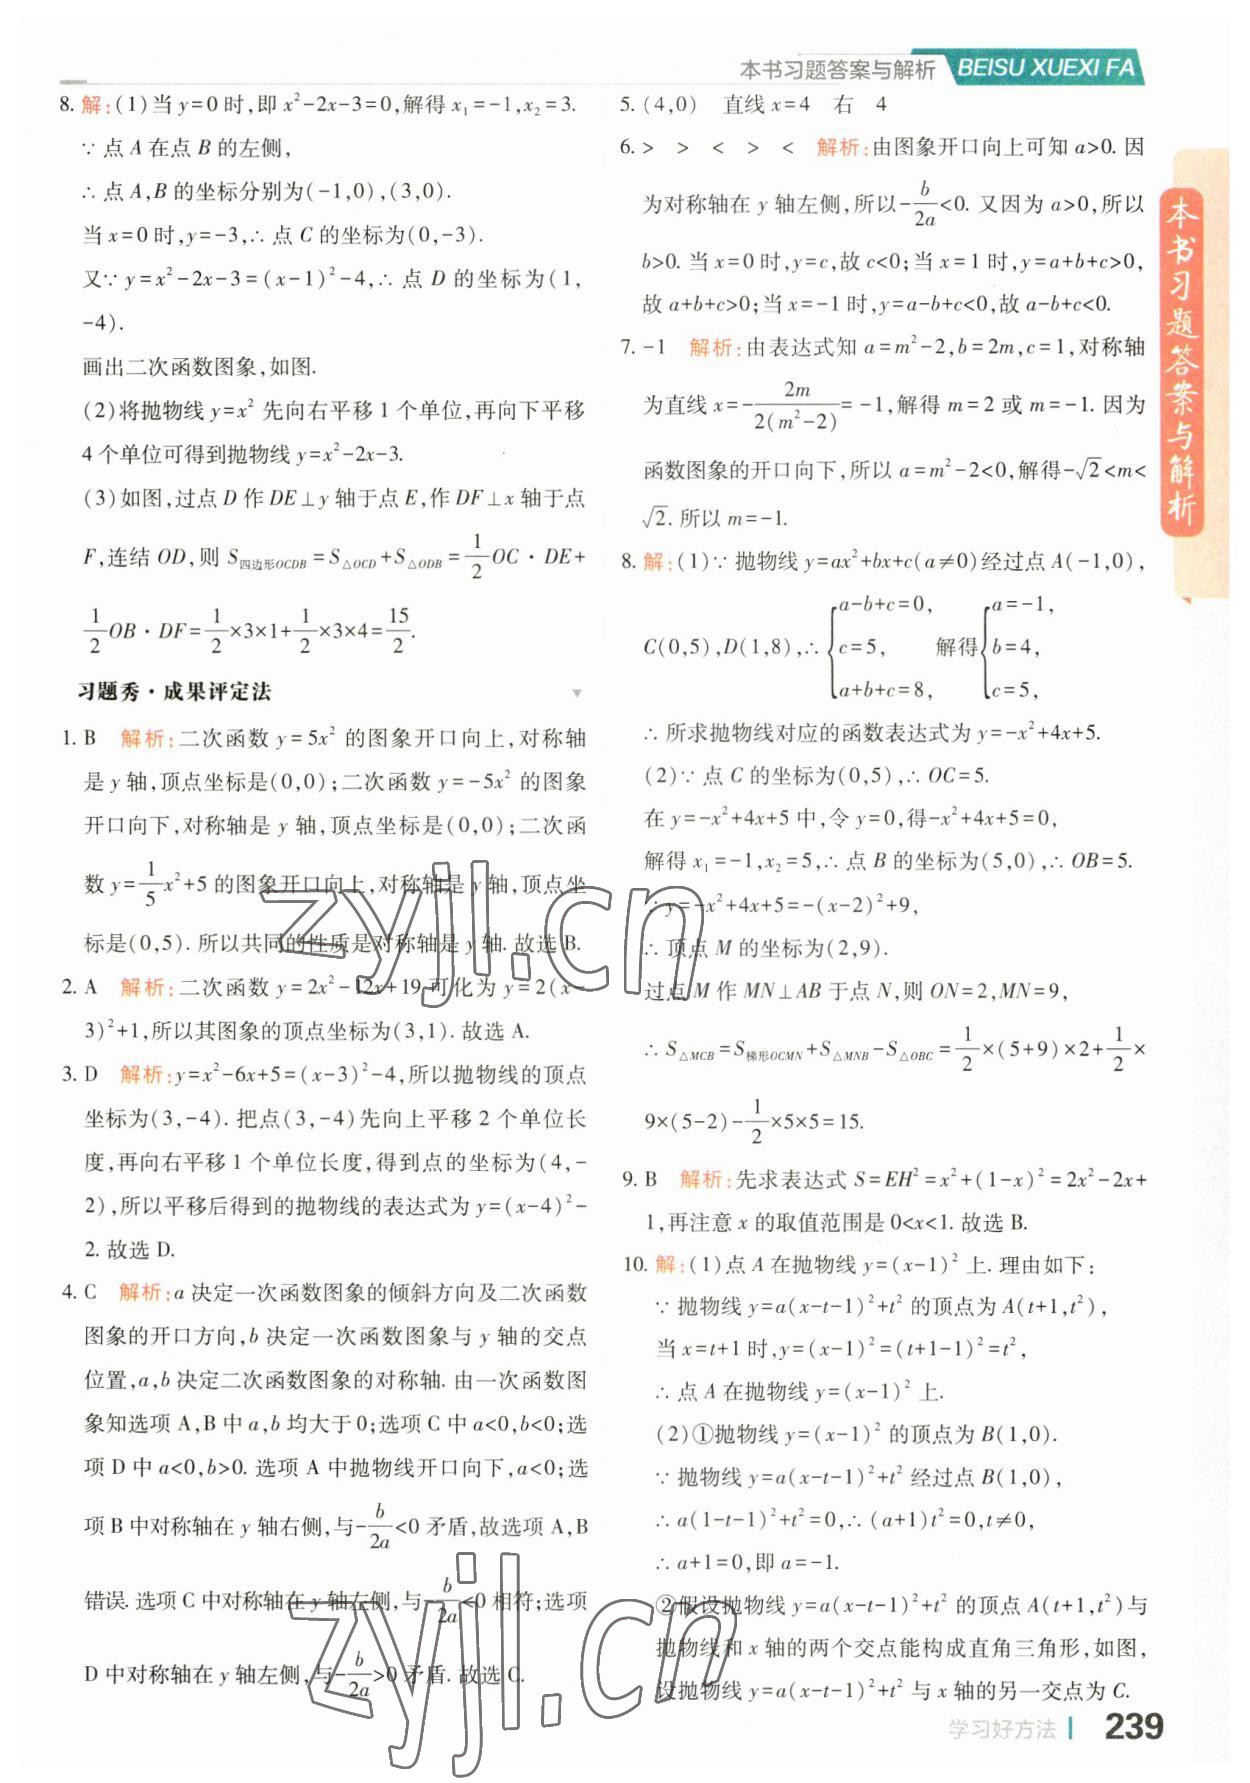 本书习题答案与解析 BEISU XUEXI FA
8. 解:(1)当 y=0 时,即 x²-2x-3=0,解得 x₁=-1,x₂=3.
∵ 点 A 在点 B 的左侧,
∴ 点 A,B 的坐标分别为(-1,0),(3,0).
当 x=0 时,y=-3,∴ 点 C 的坐标为(0,-3).
又∵ y=x²-2x-3=(x-1)²-4,∴ 点 D 的坐标为(1,
-4).
画出二次函数图象,如图.
(2)将抛物线 y=x² 先向右平移 1 个单位,再向下平移
4 个单位可得到抛物线 y=x²-2x-3.
(3)如图,过点 D 作 DE⊥y 轴于点 E,作 DF⊥x 轴于点
F,连结 OD,则 S四边形OCDB=S△OCD+S△ODB=1/2 OC·DE+
1/2 OB·DF=1/2×3×1+1/2×3×4=15/2.
习题秀·成果评定法
1. B 解析:二次函数 y=5x² 的图象开口向上,对称轴
是 y 轴,顶点坐标是(0,0);二次函数 y=-5x² 的图象
开口向下,对称轴是 y 轴,顶点坐标是(0,0);二次函
数 y=1/5 x²+5 的图象开口向上,对称轴是 y 轴,顶点坐
标是(0,5). 所以共同的性质是对称轴是 y 轴. 故选 B.
2. A 解析:二次函数 y=2x²-12x+19 可化为 y=2(x-
3)²+1,所以其图象的顶点坐标为(3,1). 故选 A.
3. D 解析:y=x²-6x+5=(x-3)²-4,所以抛物线的顶点
坐标为(3,-4). 把点(3,-4)先向上平移 2 个单位长
度,再向右平移 1 个单位长度,得到点的坐标为(4,-
2),所以平移后得到的抛物线的表达式为 y=(x-4)²-
2. 故选 D.
4. C 解析:a 决定一次函数图象的倾斜方向及二次函数
图象的开口方向,b 决定一次函数图象与 y 轴的交点
位置,a,b 决定二次函数图象的对称轴. 由一次函数图
象知选项 A,B 中 a,b 均大于 0;选项 C 中 a<0,b<0;选
项 D 中 a<0,b>0. 选项 A 中抛物线开口向下,a<0;选
项 B 中对称轴在 y 轴右侧,与-b/2a<0 矛盾,故选项 A,B
错误. 选项 C 中对称轴在 y 轴左侧,与-b/2a<0 相符;选项
D 中对称轴在 y 轴左侧,与-b/2a>0 矛盾. 故选 C.
5. (4,0) 直线 x=4 右 4
6. > > < > < 解析:由图象开口向上可知 a>0. 因
为对称轴在 y 轴左侧,所以-b/2a<0. 又因为 a>0,所以
b>0. 当 x=0 时,y=c,故 c<0;当 x=1 时,y=a+b+c>0,
故 a+b+c>0;当 x=-1 时,y=a-b+c<0,故 a-b+c<0.
7. -1 解析:由表达式知 a=m²-2,b=2m,c=1,对称轴
为直线 x=-2m/2(m²-2)=-1,解得 m=2 或 m=-1. 因为
函数图象的开口向下,所以 a=m²-2<0,解得-√2<m<
√2. 所以 m=-1.
8. 解:(1)∵ 抛物线 y=ax²+bx+c(a≠0)经过点 A(-1,0),
C(0,5),D(1,8),∴ {a-b+c=0, c=5, a+b+c=8, 解得{a=-1, b=4, c=5,
∴ 所求抛物线对应的函数表达式为 y=-x²+4x+5.
(2)∵ 点 C 的坐标为(0,5),∴ OC=5.
在 y=-x²+4x+5 中,令 y=0,得-x²+4x+5=0,
解得 x₁=-1,x₂=5,∴ 点 B 的坐标为(5,0),∴ OB=5.
∵ y=-x²+4x+5=-(x-2)²+9,
∴ 顶点 M 的坐标为(2,9).
过点 M 作 MN⊥AB 于点 N,则 ON=2,MN=9,
∴ S△MCB=S梯形OCMN+S△MNB-S△OBC=1/2×(5+9)×2+1/2×
9×(5-2)-1/2×5×5=15.
9. B 解析:先求表达式 S=EH²=x²+(1-x)²=2x²-2x+
1,再注意 x 的取值范围是 0<x<1. 故选 B.
10. 解:(1)点 A 在抛物线 y=(x-1)² 上. 理由如下:
∵ 抛物线 y=a(x-t-1)²+t² 的顶点为 A(t+1,t²),
当 x=t+1 时,y=(x-1)²=(t+1-1)²=t²,
∴ 点 A 在抛物线 y=(x-1)² 上.
(2)①抛物线 y=(x-1)² 的顶点为 B(1,0).
∵ 抛物线 y=a(x-t-1)²+t² 经过点 B(1,0),
∴ a(1-t-1)²+t²=0,∴ (a+1)t²=0,t≠0,
∴ a+1=0,即 a=-1.
②假设抛物线 y=a(x-t-1)²+t² 的顶点 A(t+1,t²)与
抛物线和 x 轴的两个交点能构成直角三角形,如图,
设抛物线 y=a(x-t-1)²+t² 与 x 轴的另一交点为 C.
本书习题答案与解析
zyjl.cn
zyjl.cn
学习好方法 239